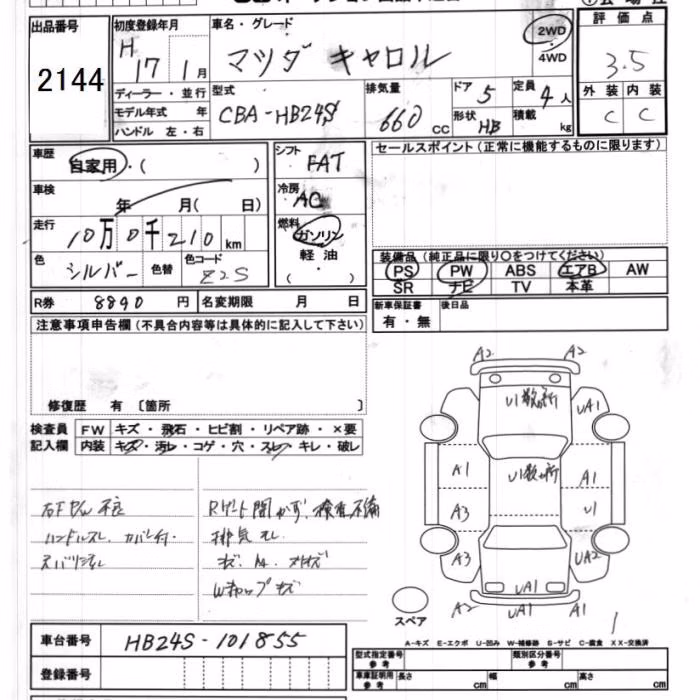 出品番号
2144
初度登録年月
H
17 1月
ディーラー・並行
モデル年式 年
ハンドル 左・右
車名・グレード
マツダ キャロル
2WD
4WD
型式
CBA-HB24S
排気量
660 CC
ドア 5
形状 HB
定員 4人
積載 kg
評価点
3.5
外装 内装
C C
車歴
自家用・( )
車検
年 月( 日)
走行
10万0千210km
色
シルバー
色替
色コード
Z2S
シフト
FAT
冷房
AC
燃料
ガソリン
軽油
( )
セールスポイント(正常に機能するものに限ります)
装備品(純正品に限り〇をつけてください)
PS PW ABS エアB AW
SR ナビ TV 本革
R券 8890 円 名変期限 月 日
新車保証書
有・無
後日品
注意事項申告欄(不具合内容等は具体的に記入して下さい)
修復歴 有 〔箇所 〕
検査員
記入欄
FW キズ・飛石・ヒビ割・リペア跡・×要
内装 キズ・汚れ・コゲ・穴・スレ・キレ・破レ
Rゲート開かず、検査不備
ハンドルスレ、カバー付・
排気モレ
Wキャップキズ
A2 A2
U1数ヶ所
UA1
U1数ヶ所
A1 A1
A3 U1
A3 UA2
UA1
A2 UA1 A1
スペア
1
A-キズ E-エクボ U-凹み W-補修跡 S-サビ C-腐食 XX-交換済
車台番号 HB24S-101855
登録番号
型式指定番号
参考
類別区分番号
参考
車庫証明用
参考
長さ cm 幅 cm 高さ cm